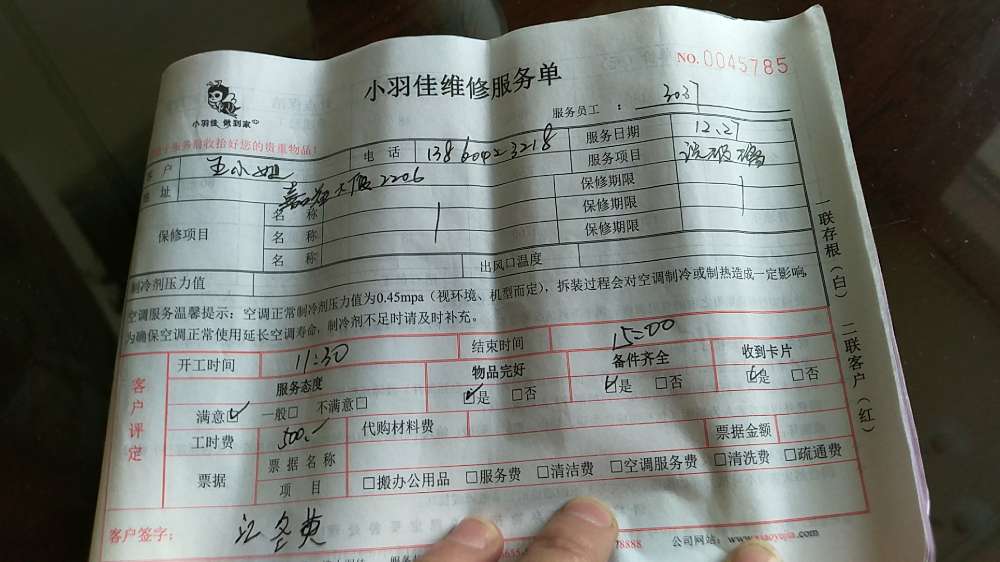 小羽佳维修服务单
NO.0045785
小羽佳 做到家
服务员工 : 3037
服务前收拾好您的贵重物品!
客 户 王小姐 电 话 服务日期 12.27
地 址 大厦2206 服务项目
保修项目 名 称 保修期限
名 称 保修期限
名 称 保修期限
制冷剂压力值 出风口温度
空调服务温馨提示:空调正常制冷剂压力值为0.45mpa(视环境、机型而定),拆装过程会对空调制冷或制热造成一定影响,
为确保空调正常使用延长空调寿命,制冷剂不足时请及时补充。
客户评定
开工时间 11:30 结束时间 15:00
服务态度 物品完好 备件齐全 收到卡片
满意☑ 一般□ 不满意□ ☑是 □否 ☑是 □否 ☑是 □否
工时费 500.- 代购材料费 票据金额
票据 票据名称
项 目 □搬办公用品 □服务费 □清洁费 □空调服务费 □清洗费 □疏通费
客户签字: 江冬英
公司网站:www.xiaoyujia.com
一联存根(白) 二联客户(红)